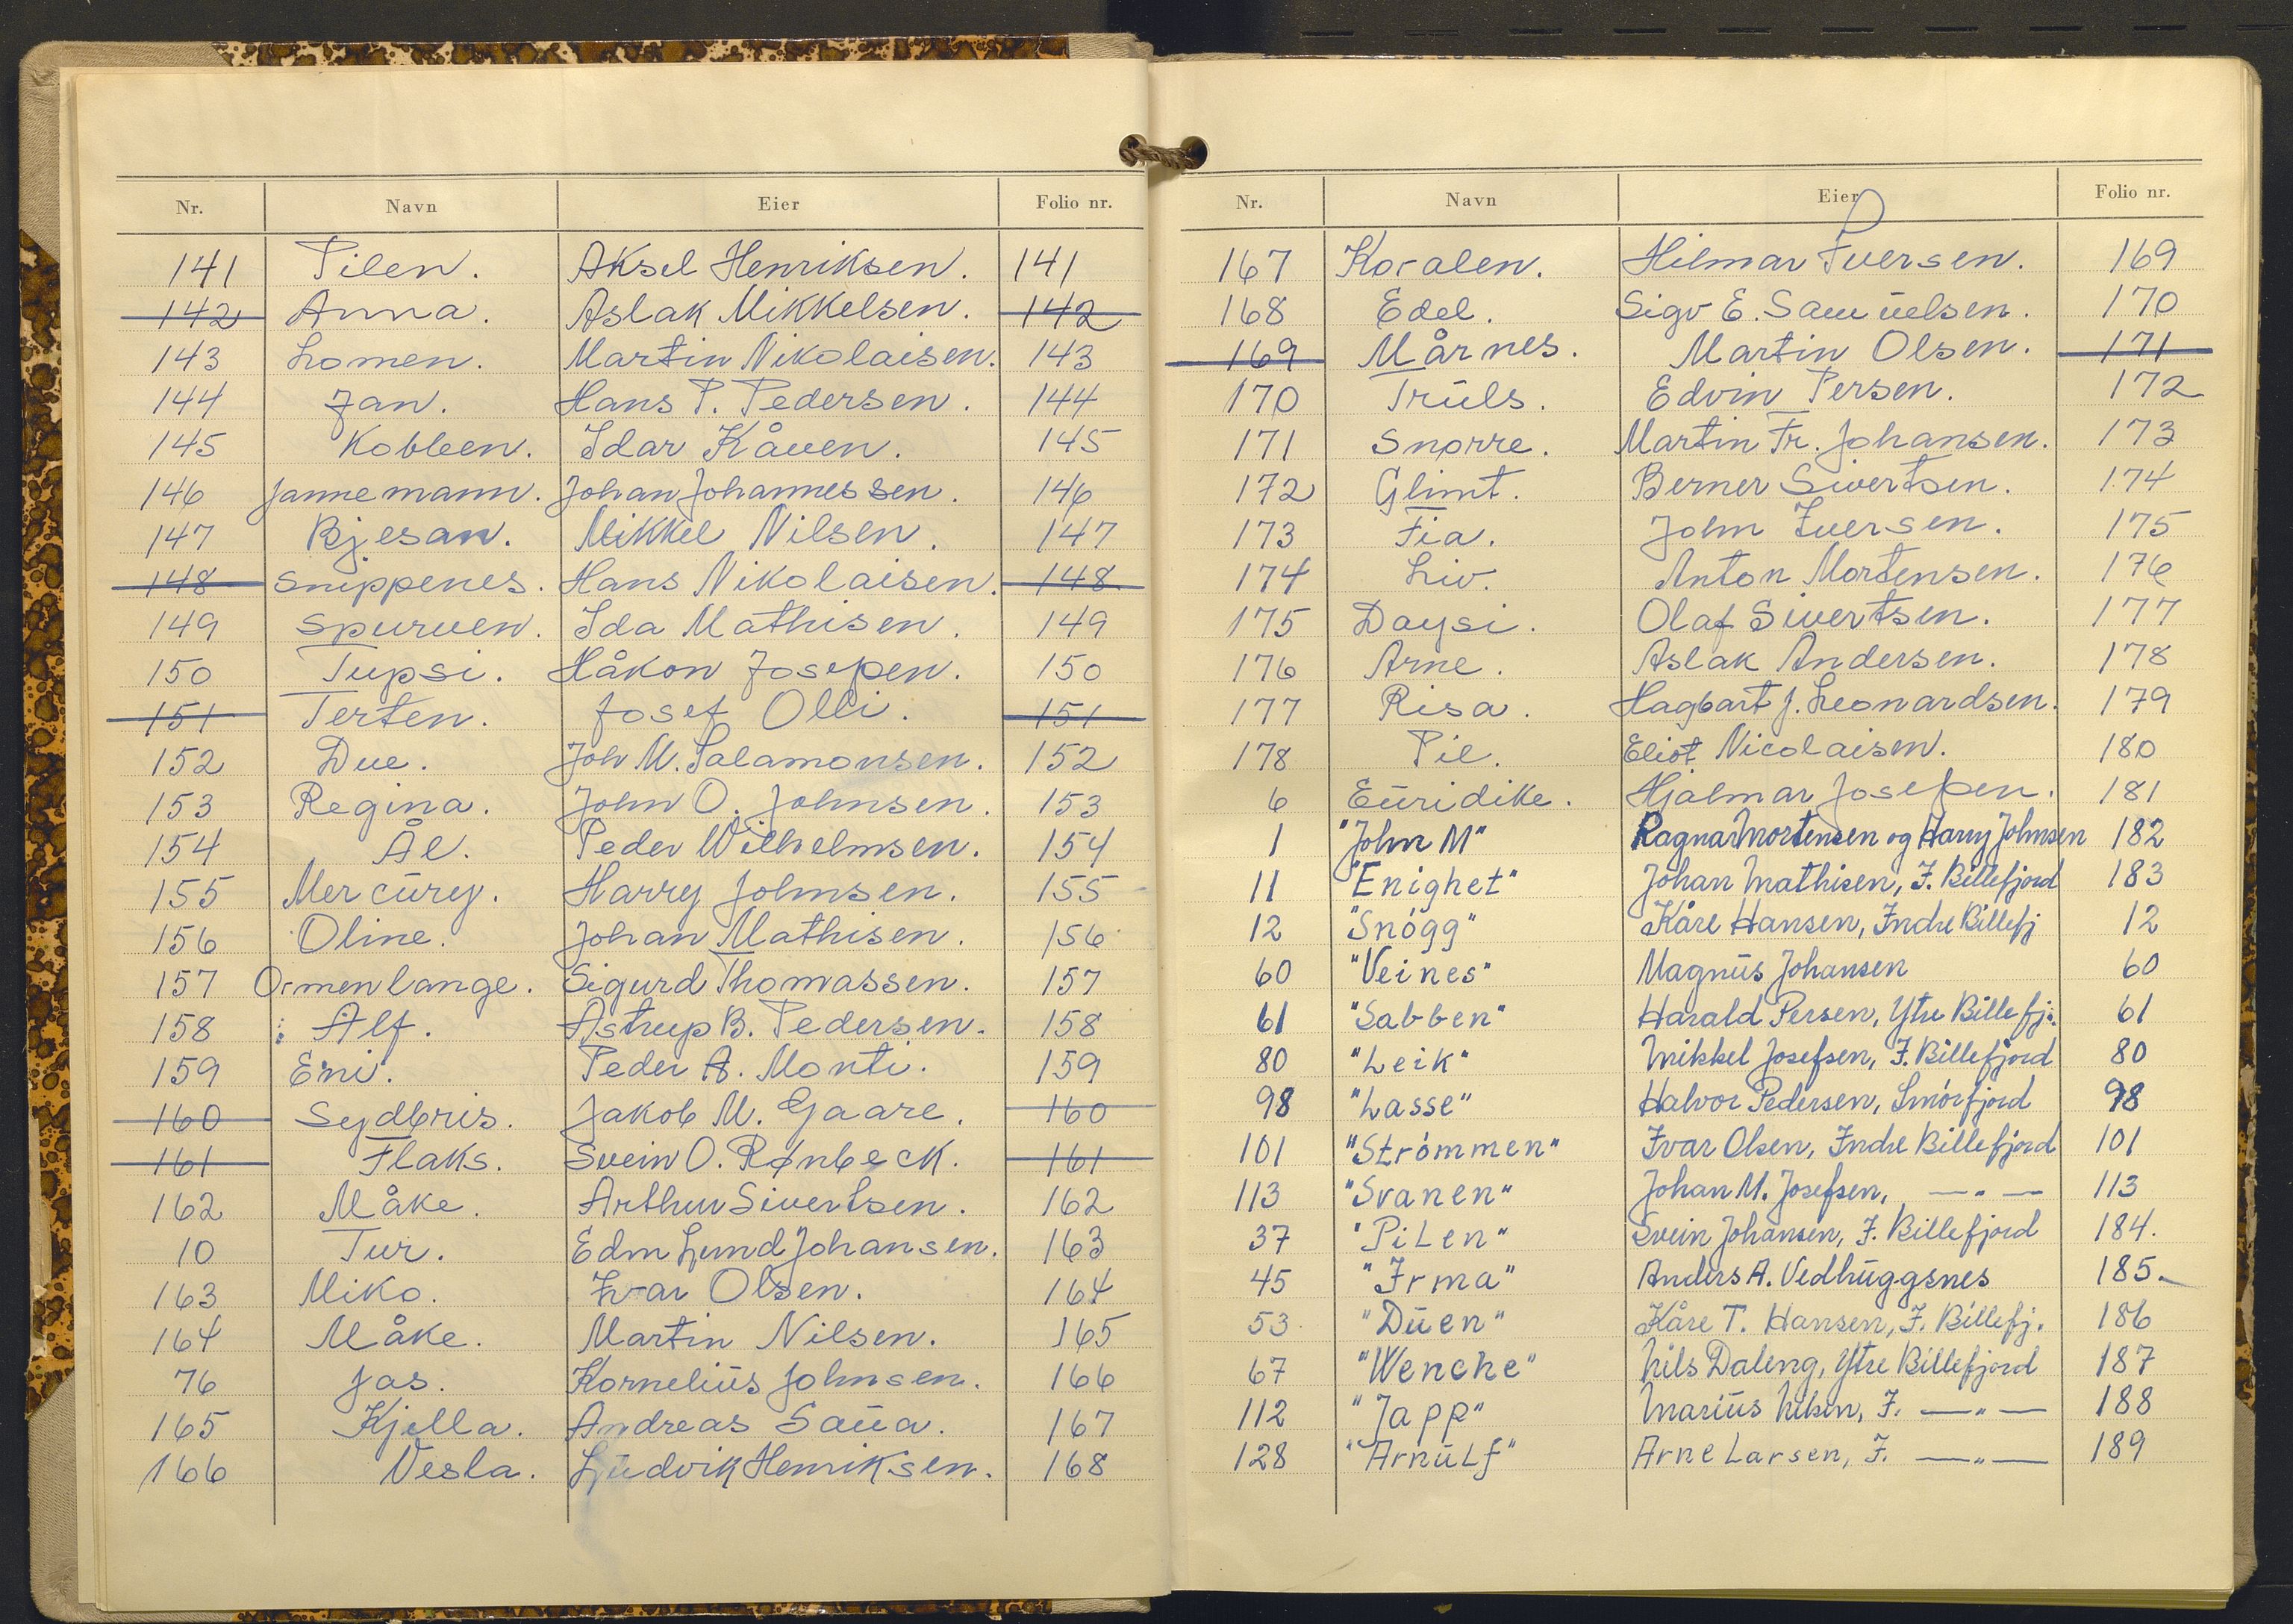 Nr. Navn Eier Folio nr.
141 Pilen. Aksel Henriksen. 141
142 Anna. Aslak Mikkelsen. 142
143 Lomen. Martin Nikolaisen. 143
144 Jan. Hans P. Pedersen. 144
145 Kobben. Idar Kåven. 145
146 Jannemann. Johan Johannessen. 146
147 Bjesan. Mikkel Nilsen. 147
148 Snippenes. Hans Nikolaisen. 148
149 Spurven. Ida Mathisen. 149
150 Tupsi. Håkon Josefsen. 150
151 Terten. Josef Olli. 151
152 Due. Joh M. Salamonsen. 152
153 Regina. John O. Johnsen. 153
154 Ål. Peder Wilhelmsen. 154
155 Mercüry. Harry Johnsen. 155
156 Oline. Johan Mathisen. 156
157 Ormenlange. Sigurd Thomassen. 157
158 Alf. Astrup B. Pedersen. 158
159 Eni. Peder A. Monti. 159
160 Sydbris. Jakob M. Gaare. 160
161 Flaks. Svein O. Rønbeck. 161
162 Måke. Arthur Sivertsen. 162
10 Tur. Edm Lund Johansen. 163
163 Miko. Ivar Olsen. 164
164 Måke. Martin Nilsen. 165
76 Jas. Korneliüs Johnsen. 166
165 Kjella. Andreas Saüa. 167
166 Vesla. Lüdvik Henriksen. 168
Nr. Navn Eier Folio nr.
167 Koralen. Hilmar Iversen. 169
168 Edel. Sigv E. Samüelsen. 170
169 Mårnes. Martin Olsen. 171
170 Trüls. Edvin Persen. 172
171 Snorre. Martin Fr. Johansen. 173
172 Glimt. Berner Sivertsen. 174
173 Fia. John Iversen. 175
174 Liv. Anton Mortensen. 176
175 Daysi. Olaf Sivertsen. 177
176 Arne. Aslak Andersen. 178
177 Risa. Hagbart J. Leonardsen. 179
178 Pil. Eliot Nicolaisen. 180
6 Eüridike. Hjalmar Josefsen. 181
1 "John M" Ragnar Mortensen og Harry Johnsen 182
11 "Enighet" Johan Mathisen, I. Billefjord 183
12 "Snögg" Kåre Hansen, Indre Billefj 12
60 "Veines" Magnüs Johansen 60
61 "Sabben" Harald Persen, Ytre Billefj. 61
80 "Leik" Mikkel Josefsen, I. Billefjord 80
98 "Lasse" Halvor Pedersen, Smörfjord 98
101 "Strömmen" Ivar Olsen, Indre Billefjord 101
113 "Svanen" Johan M. Josefsen, —"— 113
37 "Pilen" Svein Johansen, I. Billefjord 184.
45 "Irma" Anders A. Vedhüggsnes 185.
53 "Düen" Kåre T. Hansen, I. Billefj. 186
67 "Wenche" Nils Daleng, Ytre Billefjord 187
112 "Japp" Mariüs Nilsen, I. —"— 188
128 "Arnülf" Arne Larsen, I. —"— 189